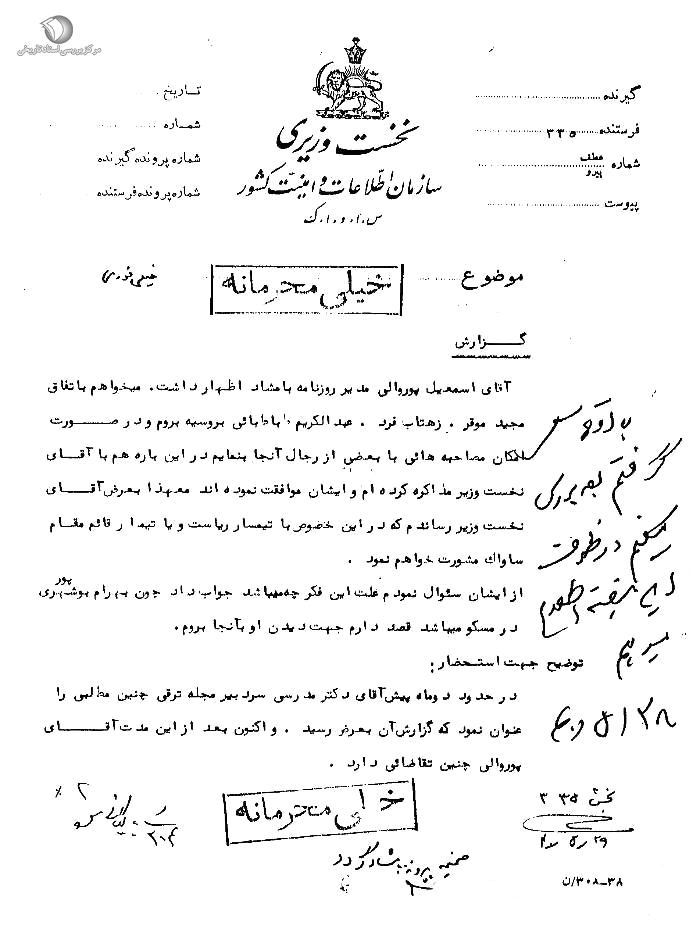 مرکز بررسی اسناد تاریخی
نخست وزیری
سازمان اطلاعات و امنیت کشور
س.ا.و.ا.ک
گیرنده
فرستنده ۳۳۵
شماره عطف پیرو
پیوست
تاریخ
شماره
شماره پرونده گیرنده
شماره پرونده فرستنده
موضوع
خیلی محرمانه
خیلی فوری
گزارش
آقای اسمعیل پوروالی مدیر روزنامه بامشاد اظهار داشت. میخواهم باتفاق
مجید موقر . زهتاب فرد . عبدالکریم طباطبائی بروسیه بروم و در صورت
امکان مصاحبه هائی با بعضی از رجال آنجا بنمایم در این باره هم با آقای
نخست وزیر مذاکره کرده ام و ایشان موافقت نموده اند معهذا بعرض آقای
نخست وزیر رساندم که در این خصوص با تیمسار ریاست و یا تیمسار قائم مقام
ساواك مشورت خواهم نمود .
از ایشان سئوال نمودم علت این فکر چه میباشد جواب داد چون بهرام بوشهری پور
در مسکو میباشد قصد دارم جهت دیدن او بآنجا بروم.
توضیح جهت استحضار :
در حدود دو ماه پیش آقای دکتر مدرسی سردبیر مجله ترقی چنین مطالبی را
عنوان نمود که گزارش آن بعرض رسید . و اکنون بعد از این مدت آقای
پوروالی چنین تقاضائی دارد .
با او تماس
گرفتم بعد بررسی
میکنم در ظرف
این هفته اطلاع
میدهم
خیلی محرمانه
بخش ۳۳۵
۲۹ ر ۵ ر ۳۷
ضمیمه پرونده بامشاد گردد
۳۰۸-۳۸/ن